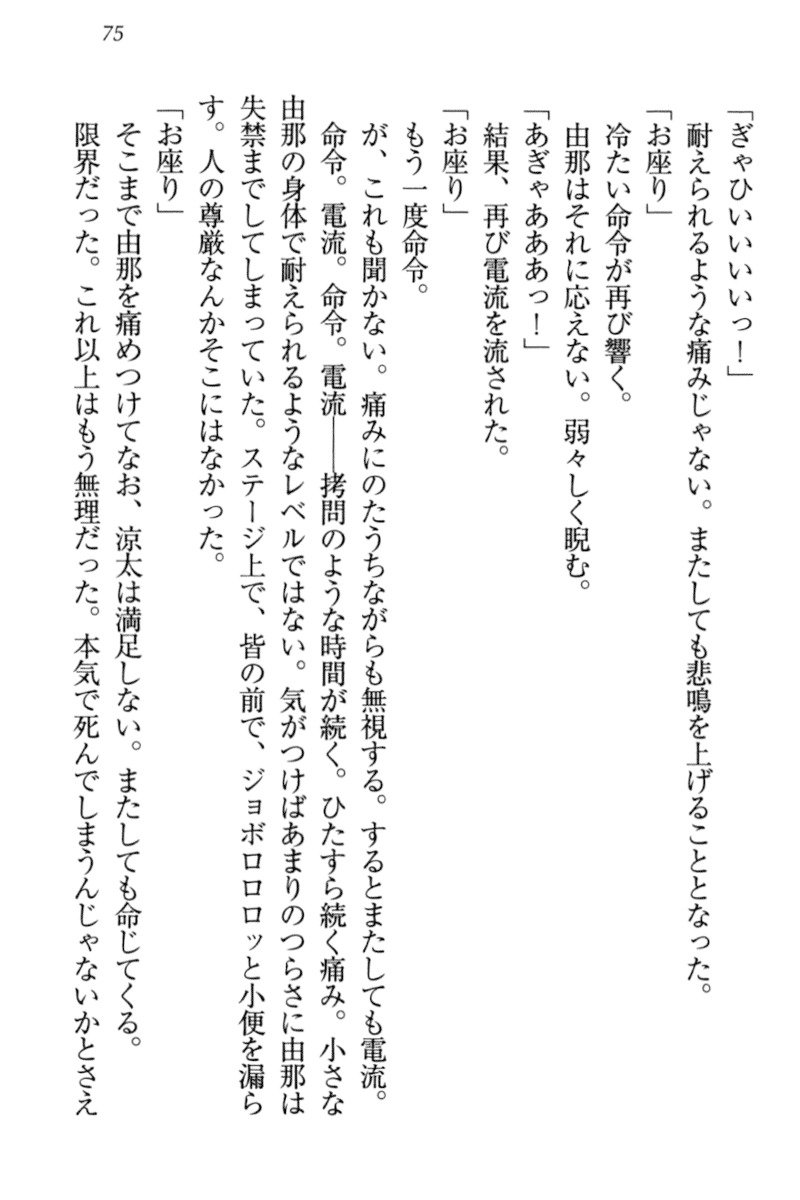 75
「ぎゃひいいいいっ！」
耐えられるような痛みじゃない。またしても悲鳴を上げることとなった。
「お座り」
冷たい命令が再び響く。
由那はそれに応えない。弱々しく睨む。
「あぎゃあああっ！」
結果、再び電流を流された。
「お座り」
もう一度命令。
が、これも聞かない。痛みにのたうちながらも無視する。するとまたしても電流。
命令。電流。命令。電流――拷問のような時間が続く。ひたすら続く痛み。小さな
由那の身体で耐えられるようなレベルではない。気がつけばあまりのつらさに由那は
失禁までしてしまっていた。ステージ上で、皆の前で、ジョボロロロッと小便を漏ら
す。人の尊厳なんかそこにはなかった。
「お座り」
そこまで由那を痛めつけてなお、涼太は満足しない。またしても命じてくる。
限界だった。これ以上はもう無理だった。本気で死んでしまうんじゃないかとさえ